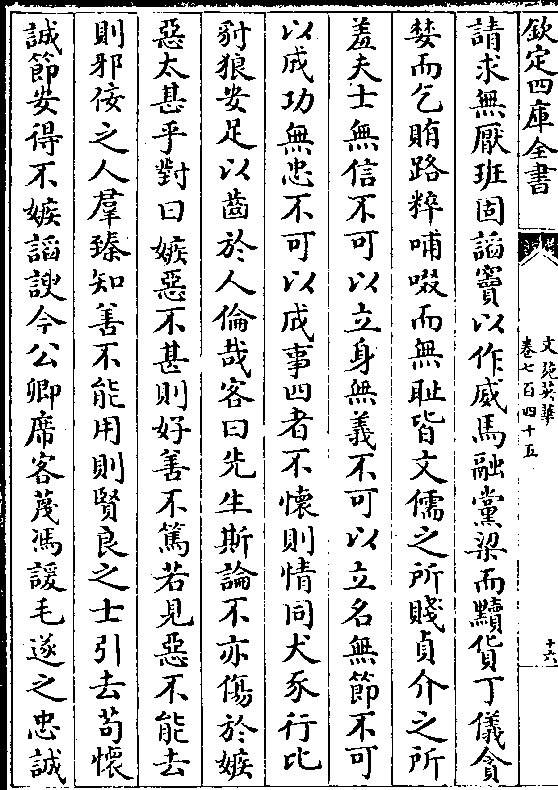 欽定四庫全書
文苑英華
卷七百四十五
十六
請求無厭班固諂竇以作威馬融黨梁而黷貨丁儀貪
婪而乞賄路粹哺啜而無耻皆文儒之所賤貞介之所
羞夫士無信不可以立身無義不可以立名無節不可
以成功無忠不可以成事四者不懷則情同犬豕行比
豺狼安足以齒於人倫哉客曰先生斯論不亦傷於嫉
惡太甚乎對曰嫉惡不甚則好善不篤若見惡不能去
則邪佞之人羣臻知善不能用則賢良之士引去苟懷
誠節安得不嫉諂諛今公卿席客蔑馮諼毛遂之忠誠